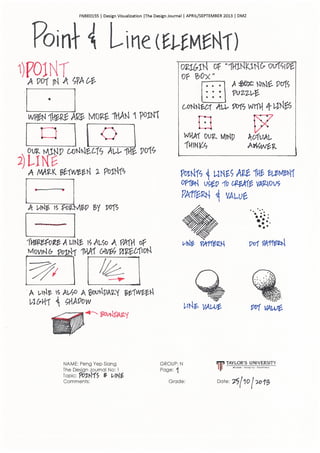 FNBE0155 | Design Visualization |The Design Journal | APRIL/SEPTEMBER 2013 | DMZ
Point & Line (ELEMENT)
1) POINT
A DOT IN A SPACE
WHEN THERE ARE MORE THAN 1 POINT
OUR MIND CONNECTS ALL THE DOTS
2) LINE
A MARK BETWEEN 2 POINTS
A LINE IS FORMED BY DOTS
THEREFORE A LINE IS ALSO A PATH OF
MOVING POINT THAT GIVES DIRECTION
A LINE IS ALSO A BOUNDARY BETWEEN
LIGHT & SHADOW
BOUNDARY
ORIGIN OF "THINKING OUTSIDE
OF BOX"
A BOX NINE DOTS
PUZZLE
CONNECT ALL DOTS WITH 4 LINES
WHAT OUR MIND
THINKS
ACTUAL
ANSWER
POINTS & LINES ARE THE ELEMENT
OFTEN USED TO CREATE VARIOUS
PATTERN & VALUE
LINE PATTERN
DOT PATTERN
LINE VALUE
DOT VALUE
NAME: Peng Yep Siang
GROUP: H
TAYLOR'S UNIVERSITY
The Design Journal No: 1
Page: 1
Topic: POINTS & LINE
Comments:
Grade:
Date: 25/10/2013